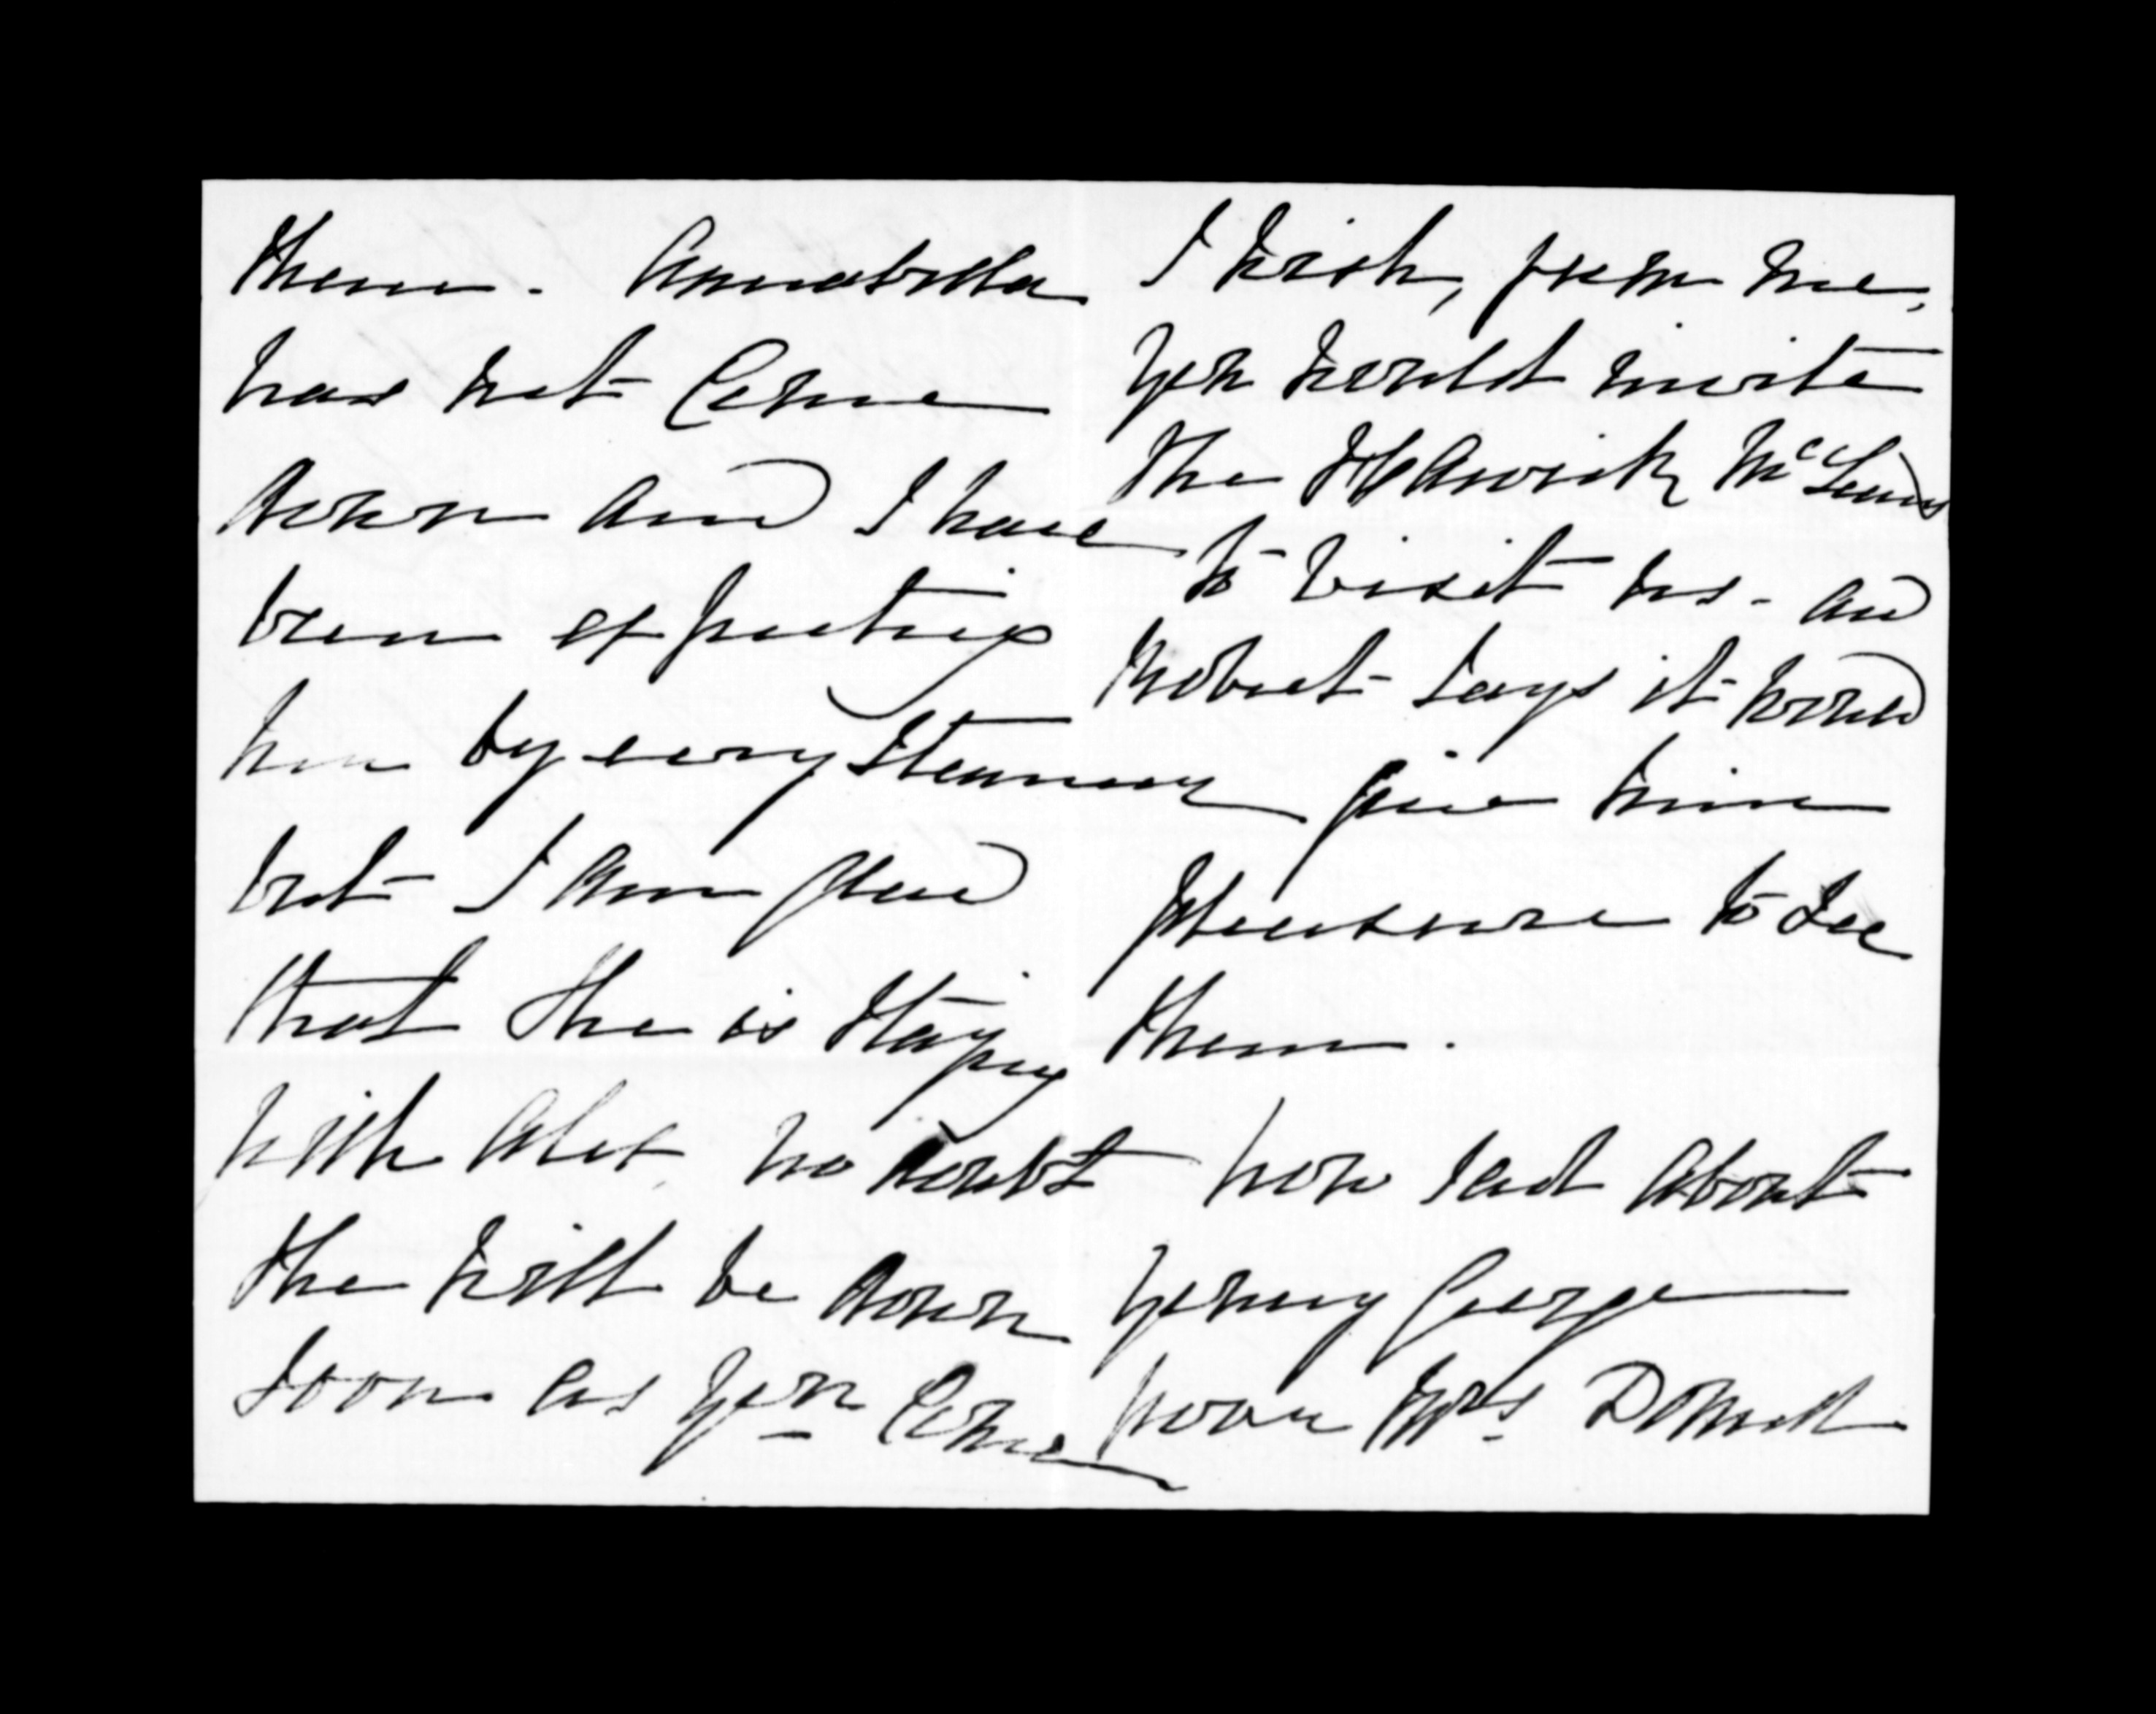 them. Annabella
has not come
down and I have
been expecting
her by every steamer
but I am glad
that she is staying
with Alex no doubt
she will be down
soon as you come
I wish, from me,
you would invite
the H Awick McLeans
to visit us - and
Robert says it would
give him
pleasure to see
them.
how sad about
young George
poor Mrs Domett